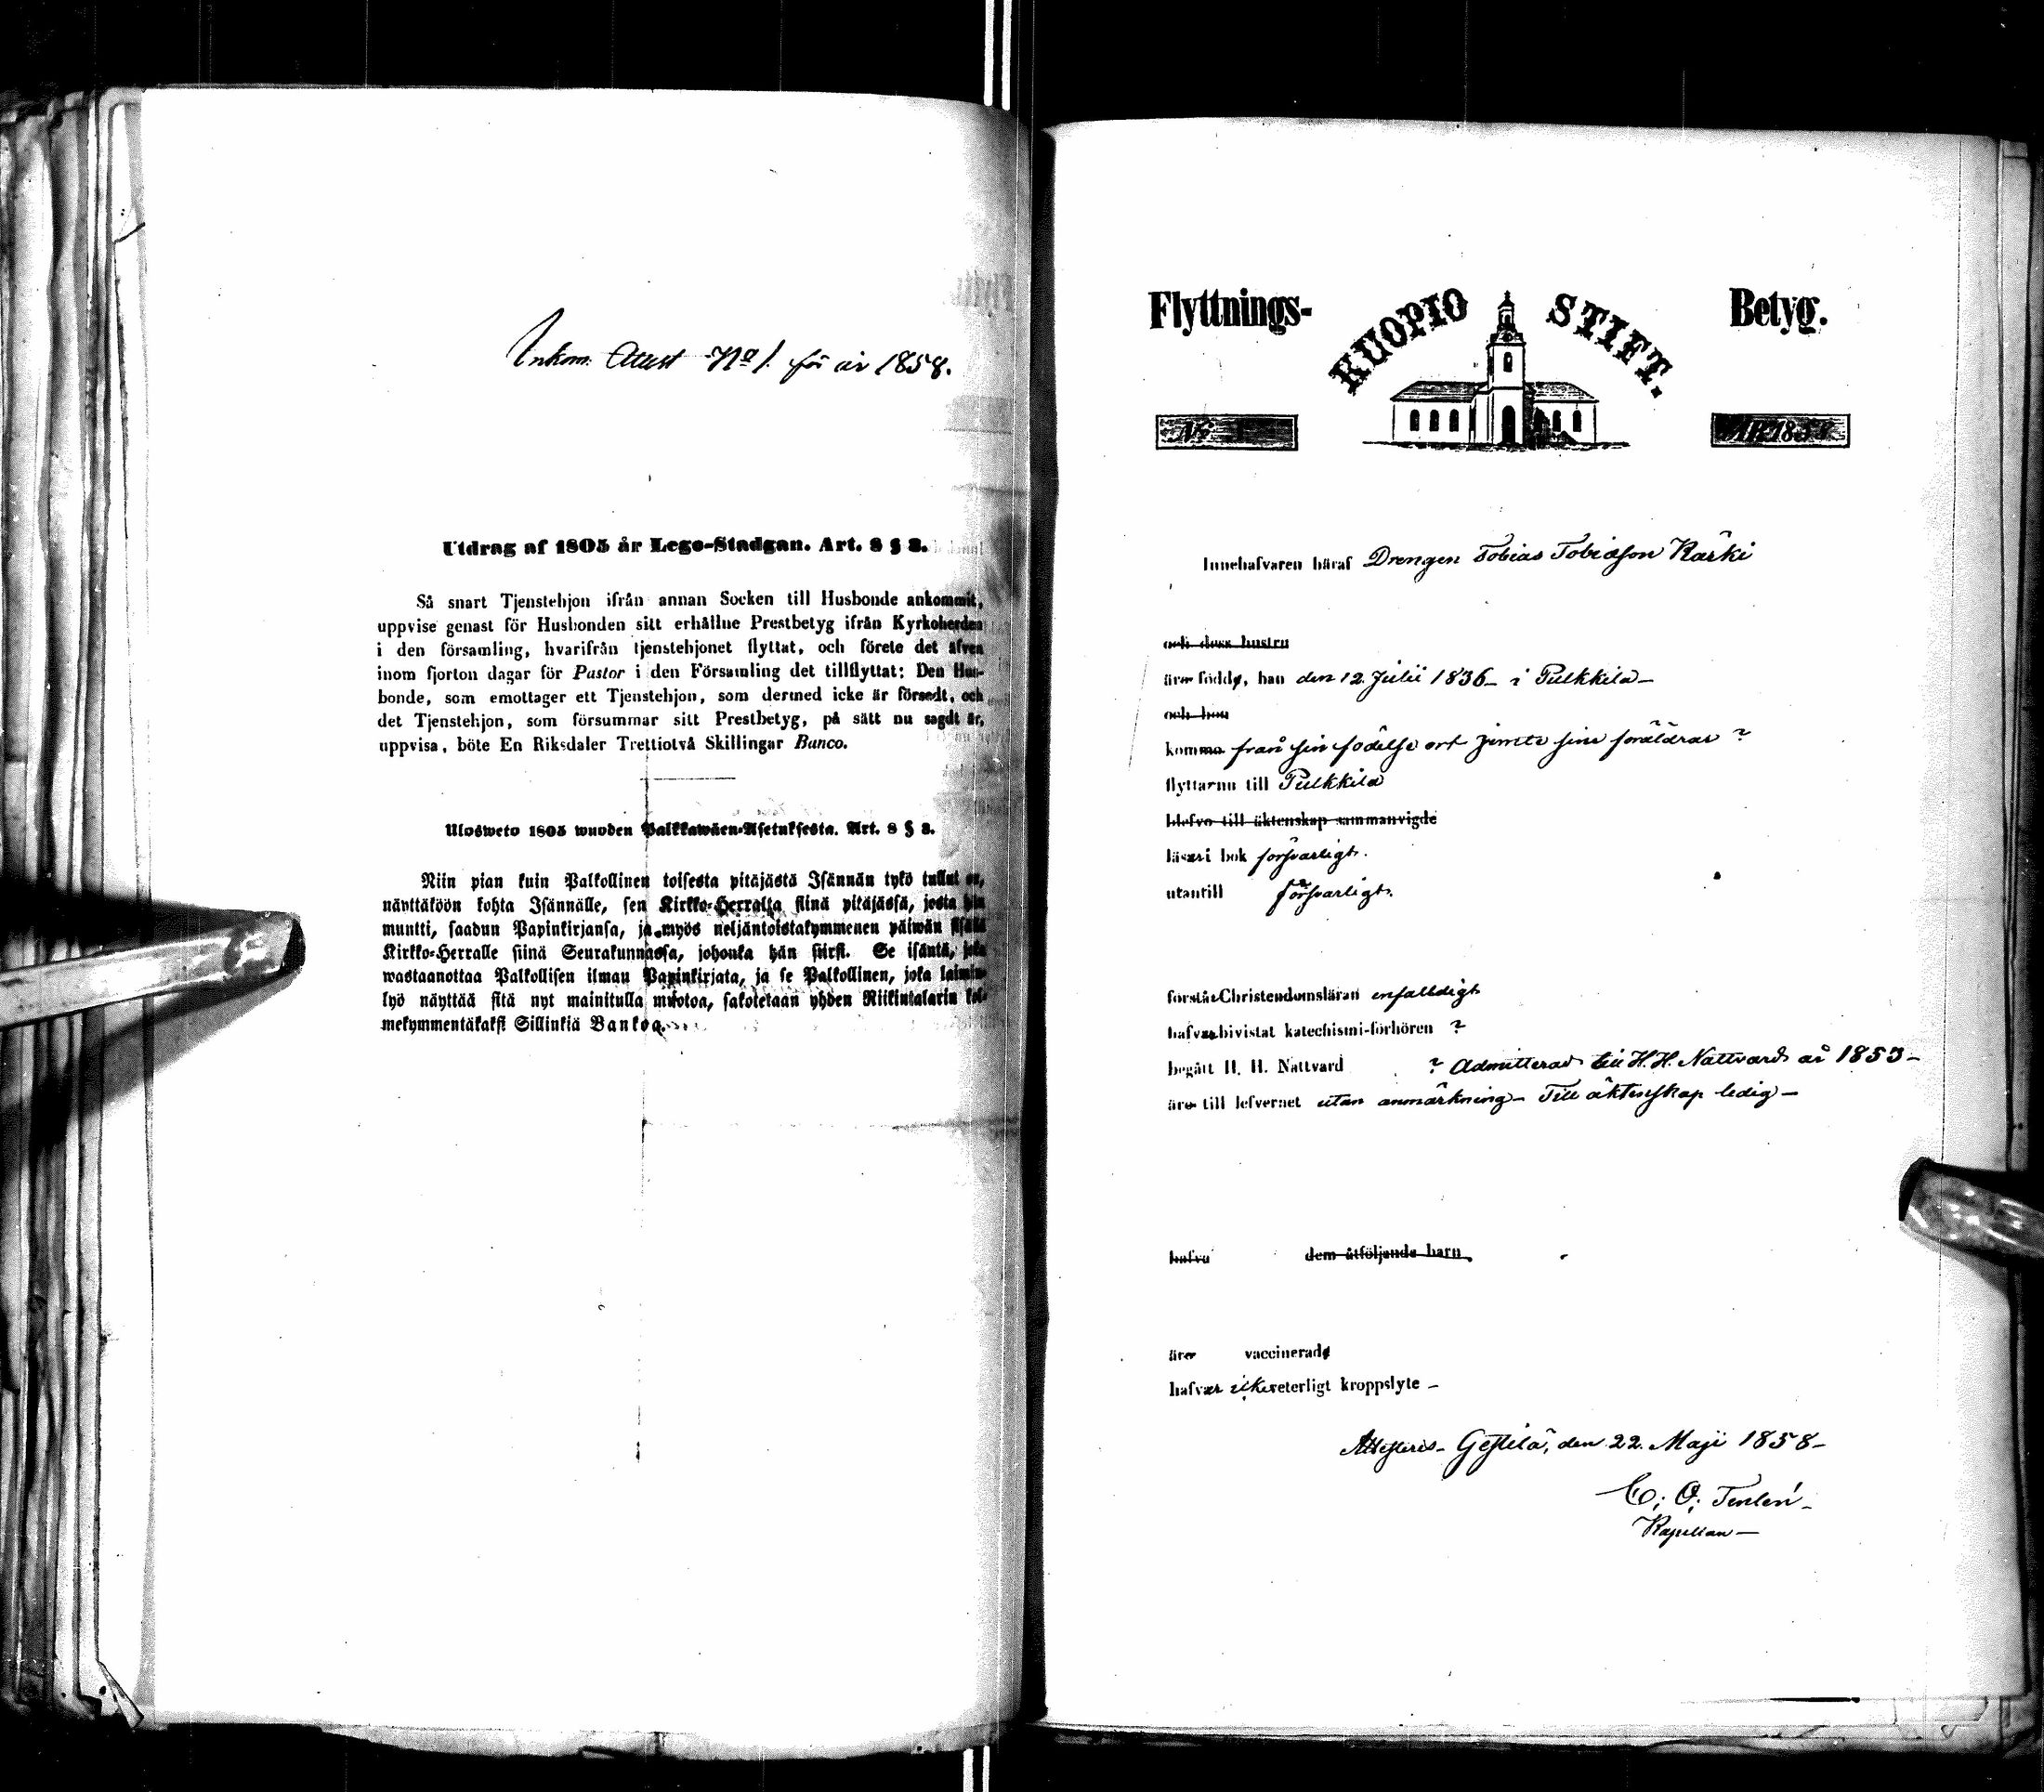 Inkom. Attest No 1. för år 1858.
Utdrag af 1805 år Lego-Stadgan. Art. 8 § 3.
Så snart Tjenstehjon ifrån annan Socken till Husbonde ankommit,
uppvise genast för Husbonden sitt erhållne Prestbetyg ifrån Kyrkoherden
i den församling, hvarifrån tjenstehjonet flyttat, och förete det äfven
inom fjorton dagar för Pastor i den Församling det tillflyttat: Den Hus-
bonde, som emottager ett Tjenstehjon, som dermed icke är försedt, och
det Tjenstehjon, som försummar sitt Prestbetyg, på sätt nu sagdt är,
uppvisa, böte En Riksdaler Trettiotvå Skillingar Banco.
Ulosweto 1805 wuoden Palkkawäen-Asetuksesta. Art. 8 § 3.
Niin pian kuin Palkollinen toisesta pitäjästä Isännän tykö tullut on,
näyttäköön kohta Isännälle, sen Kirkko-Herralta siinä pitäjässä, josta hän
muutti, saadun Papinkirjansa, ja myös neljäntoistakymmenen päiwän sisällä
Kirkko-Herralle siinä Seurakunnassa, johonka hän siirsi. Se isäntä, joka
wastaanottaa Palkollisen ilman Papinkirjata, ja se Palkollinen, joka laimin-
lyö näyttää sitä nyt mainitulla muotoa, sakotetaan yhden Riikintalarin kol-
mekymmentäkaksi Sillinkiä Bankoa.
Flyttnings- KUOPIO STIFT. Betyg.
No 1 ÅR 1858
Innehafvaren häraf Drengen Tobias Tobiasson Kärki
och dess hustru
äro födde, han den 12 Julii 1836 - i Pulkkila -
och hon
komma från sin födelse ort jemte sine föräldrar ?
flyttar nu till Pulkkila
blefvo till äktenskap sammanvigde
läser i bok försvarligt.
utantill försvarligt.
förstår Christendomsläran enfalldigt
hafver bivistat katechismi-förhören ?
begått H. H. Nattvard ? Admitterad till H. H. Nattvard år 1853 -
äro till lefvernet utan anmärkning - Till äktenskap ledig -
hafva dem åtföljande barn
äro vaccinerade
hafver icke veterligt kroppslyte -
Attesteris - Gestilä, den 22. Maji 1858 -
C. O.
Kapellan -